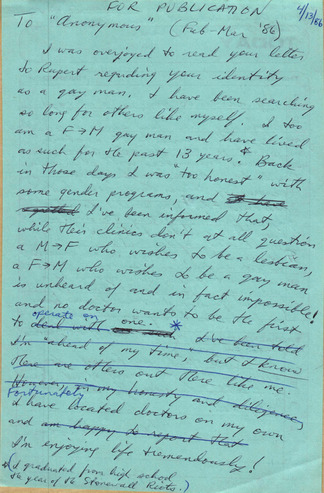 FOR PUBLICATION
4/13/86
To "Anonymous" (Feb-Mar '86)
I was overjoyed to read your letter
to Rupert regarding your identity
as a gay man. I have been searching
so long for others like myself. I too
am a F→M gay man and have lived
as such for the past 13 years.* Back
in those days I was "too honest" with
some gender programs, and
I've been informed that,
while their clinics don't at all question
a M→F who wishes to be a lesbian,
a F→M who wishes to be a gay man
is unheard of and in fact impossible!
and no doctor wants to be the first
operate on
to deal with one. * I've been told
I'm "ahead of my time," but I know
there are others out there like me.
However, in my honesty and diligence,
Fortunately
I have located doctors on my own
and am happy to report that
I'm enjoying life tremendously!
*(I graduated from high school
the year of the Stonewall Riots.)